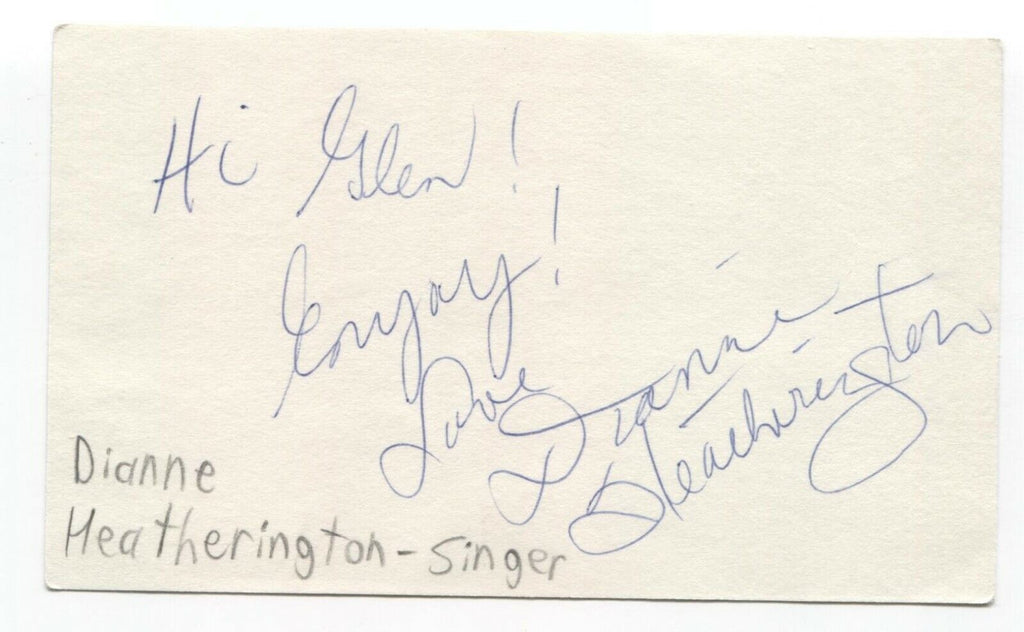 Hi Glen!
Enjoy!
Love Dianne
Heatherington
Dianne
Heatherington - Singer